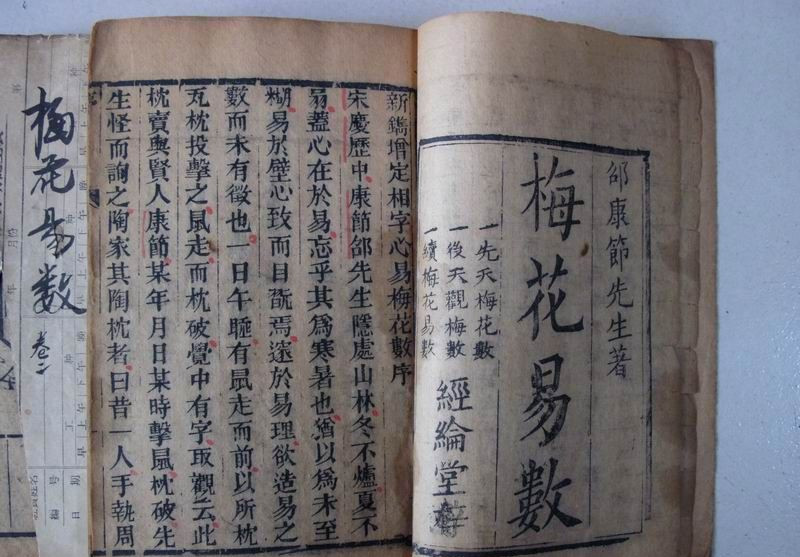 邵康節先生著
梅花易數
一先天梅花數
一後天觀梅數
一續梅花易數
經綸堂
新鐫增定相字心易梅花數序
宋慶歷中康節邵先生隱處山林冬不爐夏不
扇蓋心在於易忘乎其為寒暑也猶以為未至
糊易於壁心致而目翫焉遠於易理欲造易之
數而未有徵也一日午睡有鼠走而前以所枕
瓦枕投擊之鼠走而枕破覺中有字取觀云此
枕賣與賢人康節某年月日某時擊鼠枕破先
生怪而詢之陶家其陶枕者曰昔一人手執周
梅花易數
卷二